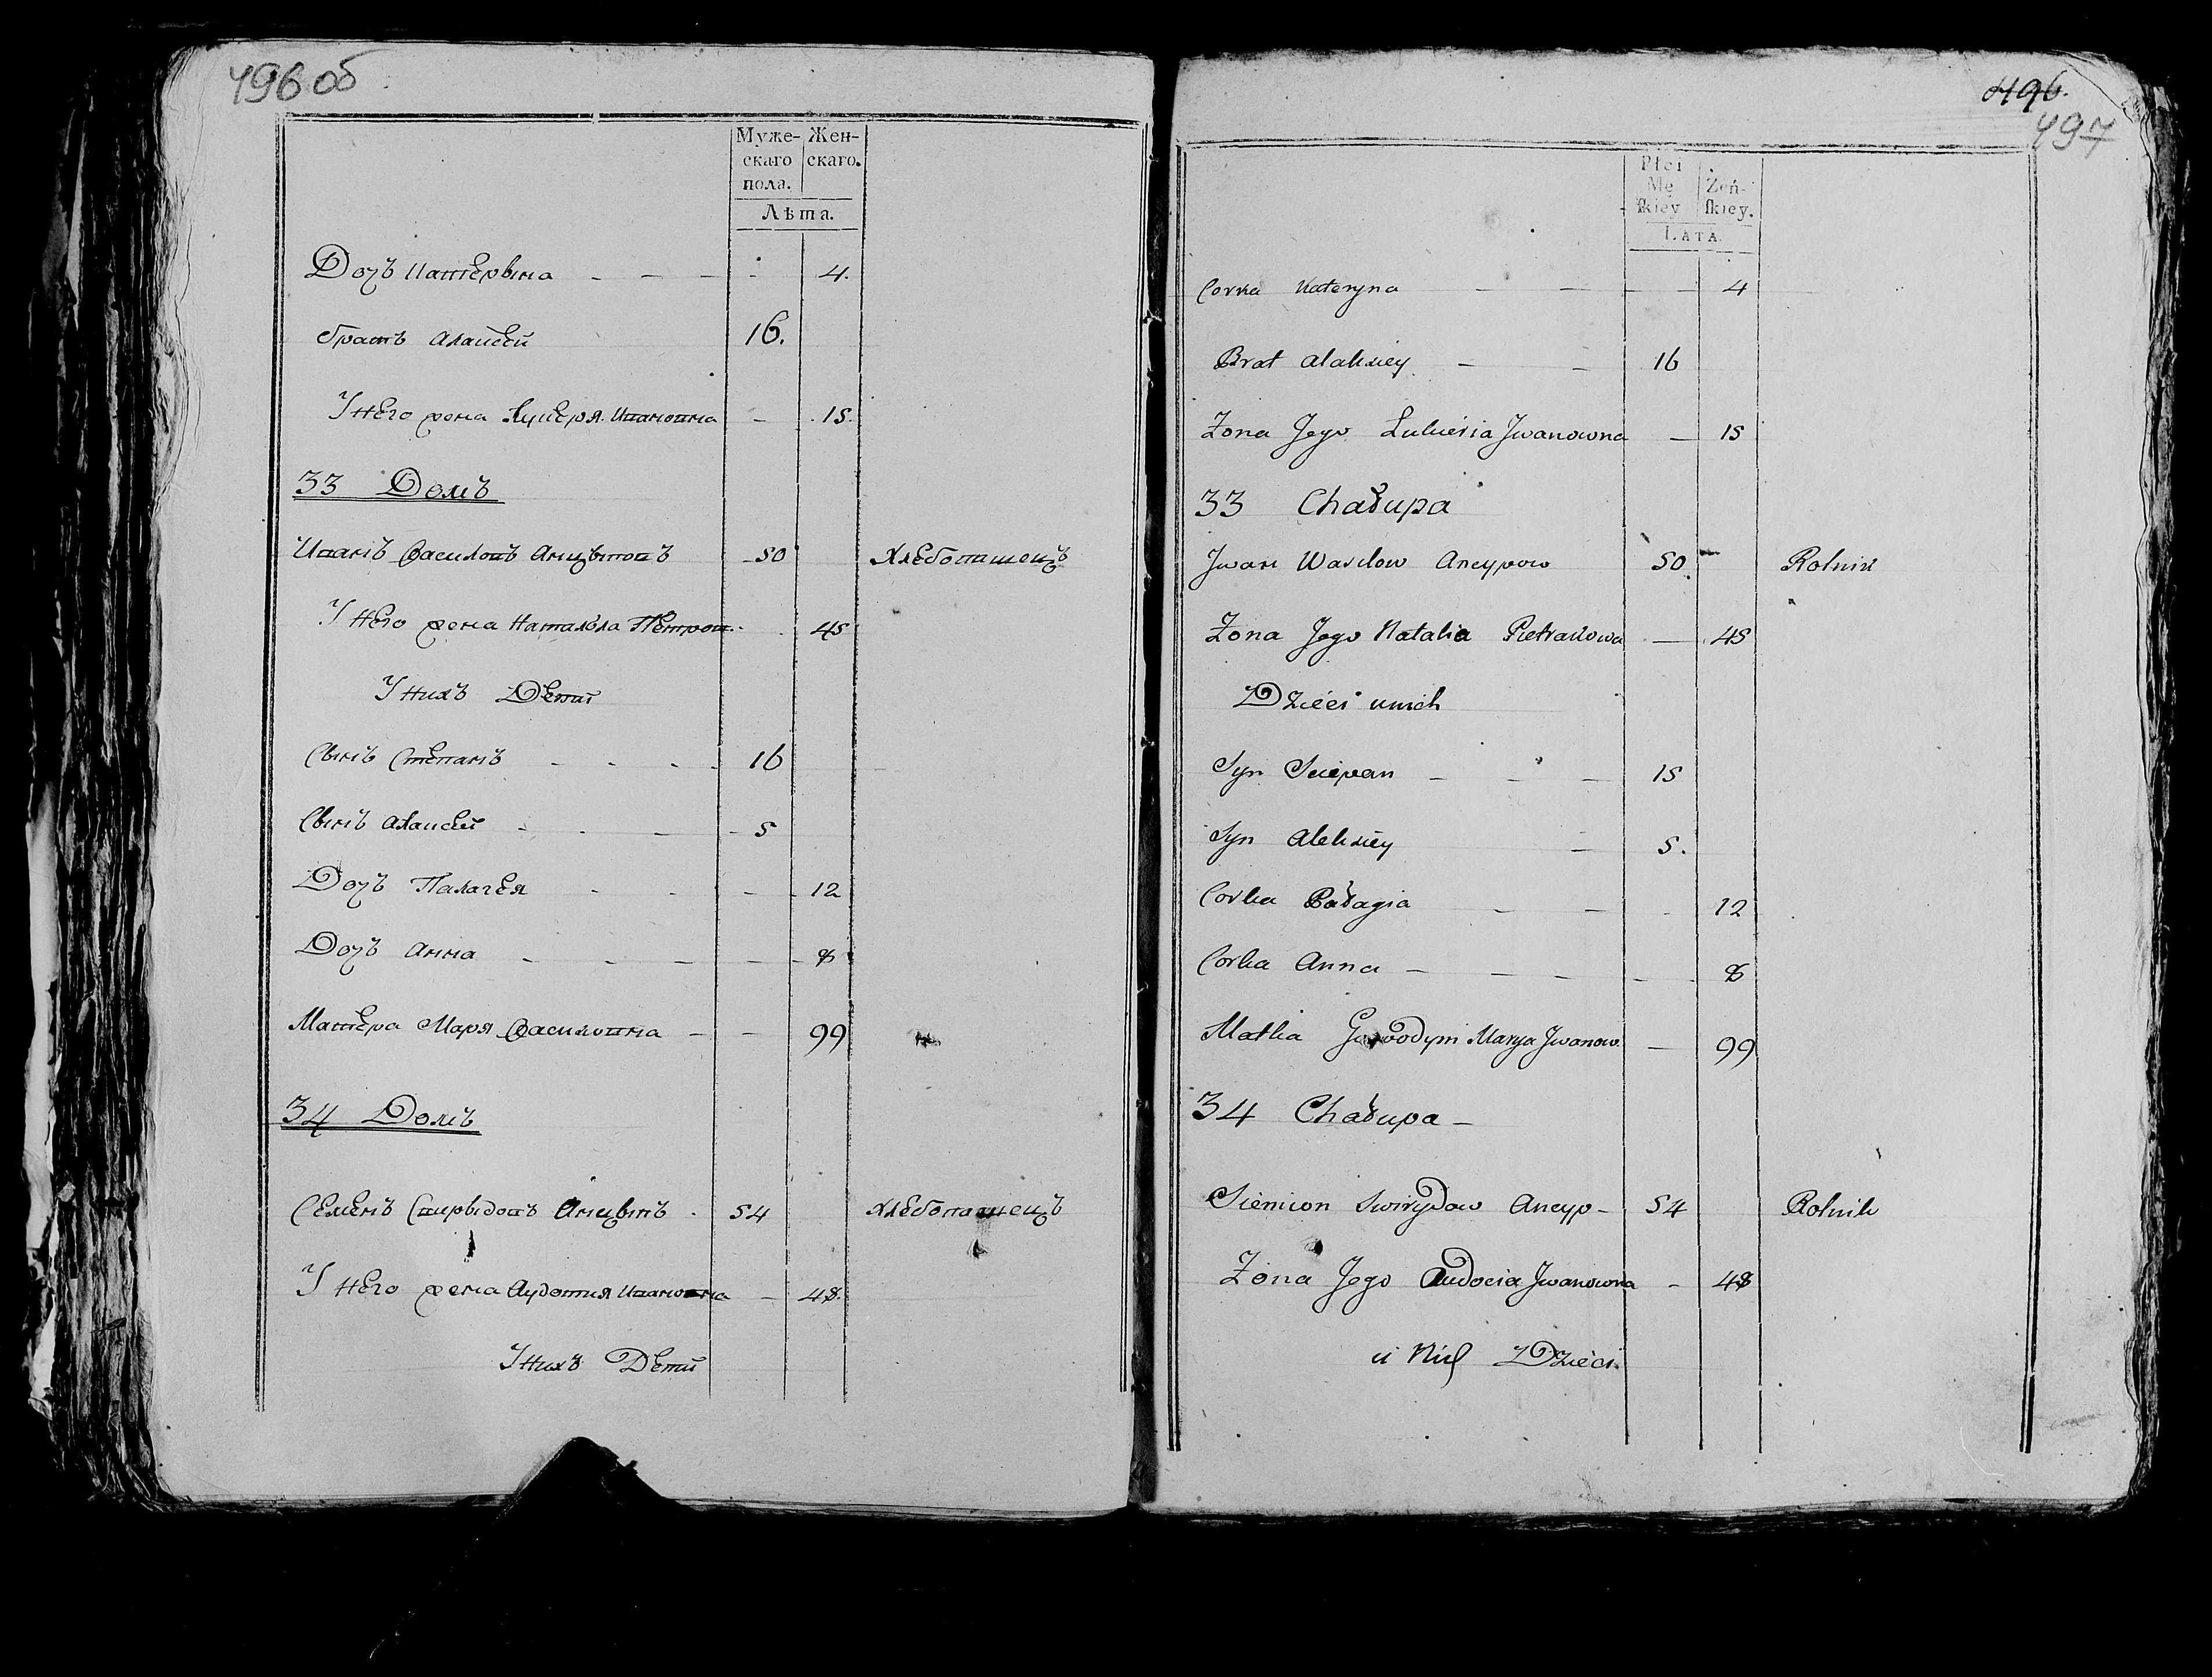 496 об
Муже- Жен-
скаго скаго.
пола.
Лѣта.
Дочъ Катерына - - - - 4.
братъ Алаксей 16.
У него жена Лукеря Ивановна - 15.
33 Домъ
Иванъ Василовъ Анцыповъ 50 Хлебопашецъ
У него жена Наталъла Петров. 45
У нихъ Дети
Сынъ Степанъ - - - - 16
Сынъ Алаксей - - - 5
Дочъ Палагея - - - 12
Дочъ Анна - - - - - 8
Матера Маря Василовна - - 99
34 Домъ
Семенъ Свирыдовъ Анцыпъ. 54 Хлебопашецъ
У него жена Аудотия Ивановна - 48.
У нихъ Дети
496.
497
Płci
Mę Żeń-
ſkiey ſkiey.
LATA.
Corka Kateryna - - - - 4
Brat Alaksiey - - 16
Zona Jego Lukieria Jwanowna - 15
33 Chałupa
Jwan Wasilow Ancypow 50 Rolnik
Zona Jego Natalia Pietrakowa - 45
Dzieci unich
Syn Sciepan - - - 15
Syn Aleksiey - 5.
Corka Pałagia - - - 12
Corka Anna - - - - - 8
Matka Gospodyni Marya Jwanow. - 99
34 Chałupa -
Siemion Swirydow Ancyp - 54 Rolnik
Zona Jego Audocia Jwanowna - 48
u Nich Dzieci.